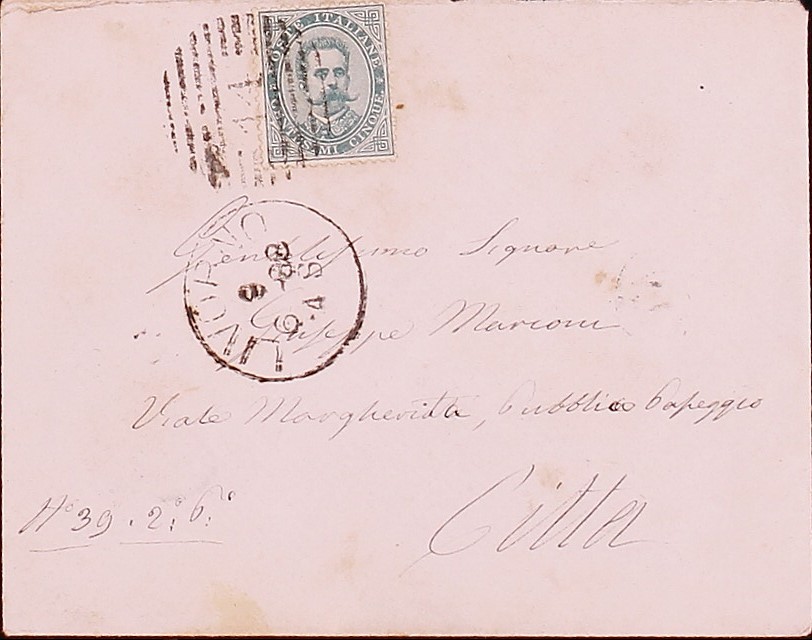 POSTE ITALIANE
CENTESIMI CINQUE
14
LIVORNO
6 -88
9
4 S
Gentilissimo Signore
Giuseppe Marconi
Viale Margherita, Pubblico Passeggio
Città
N° 39. 2° P.°